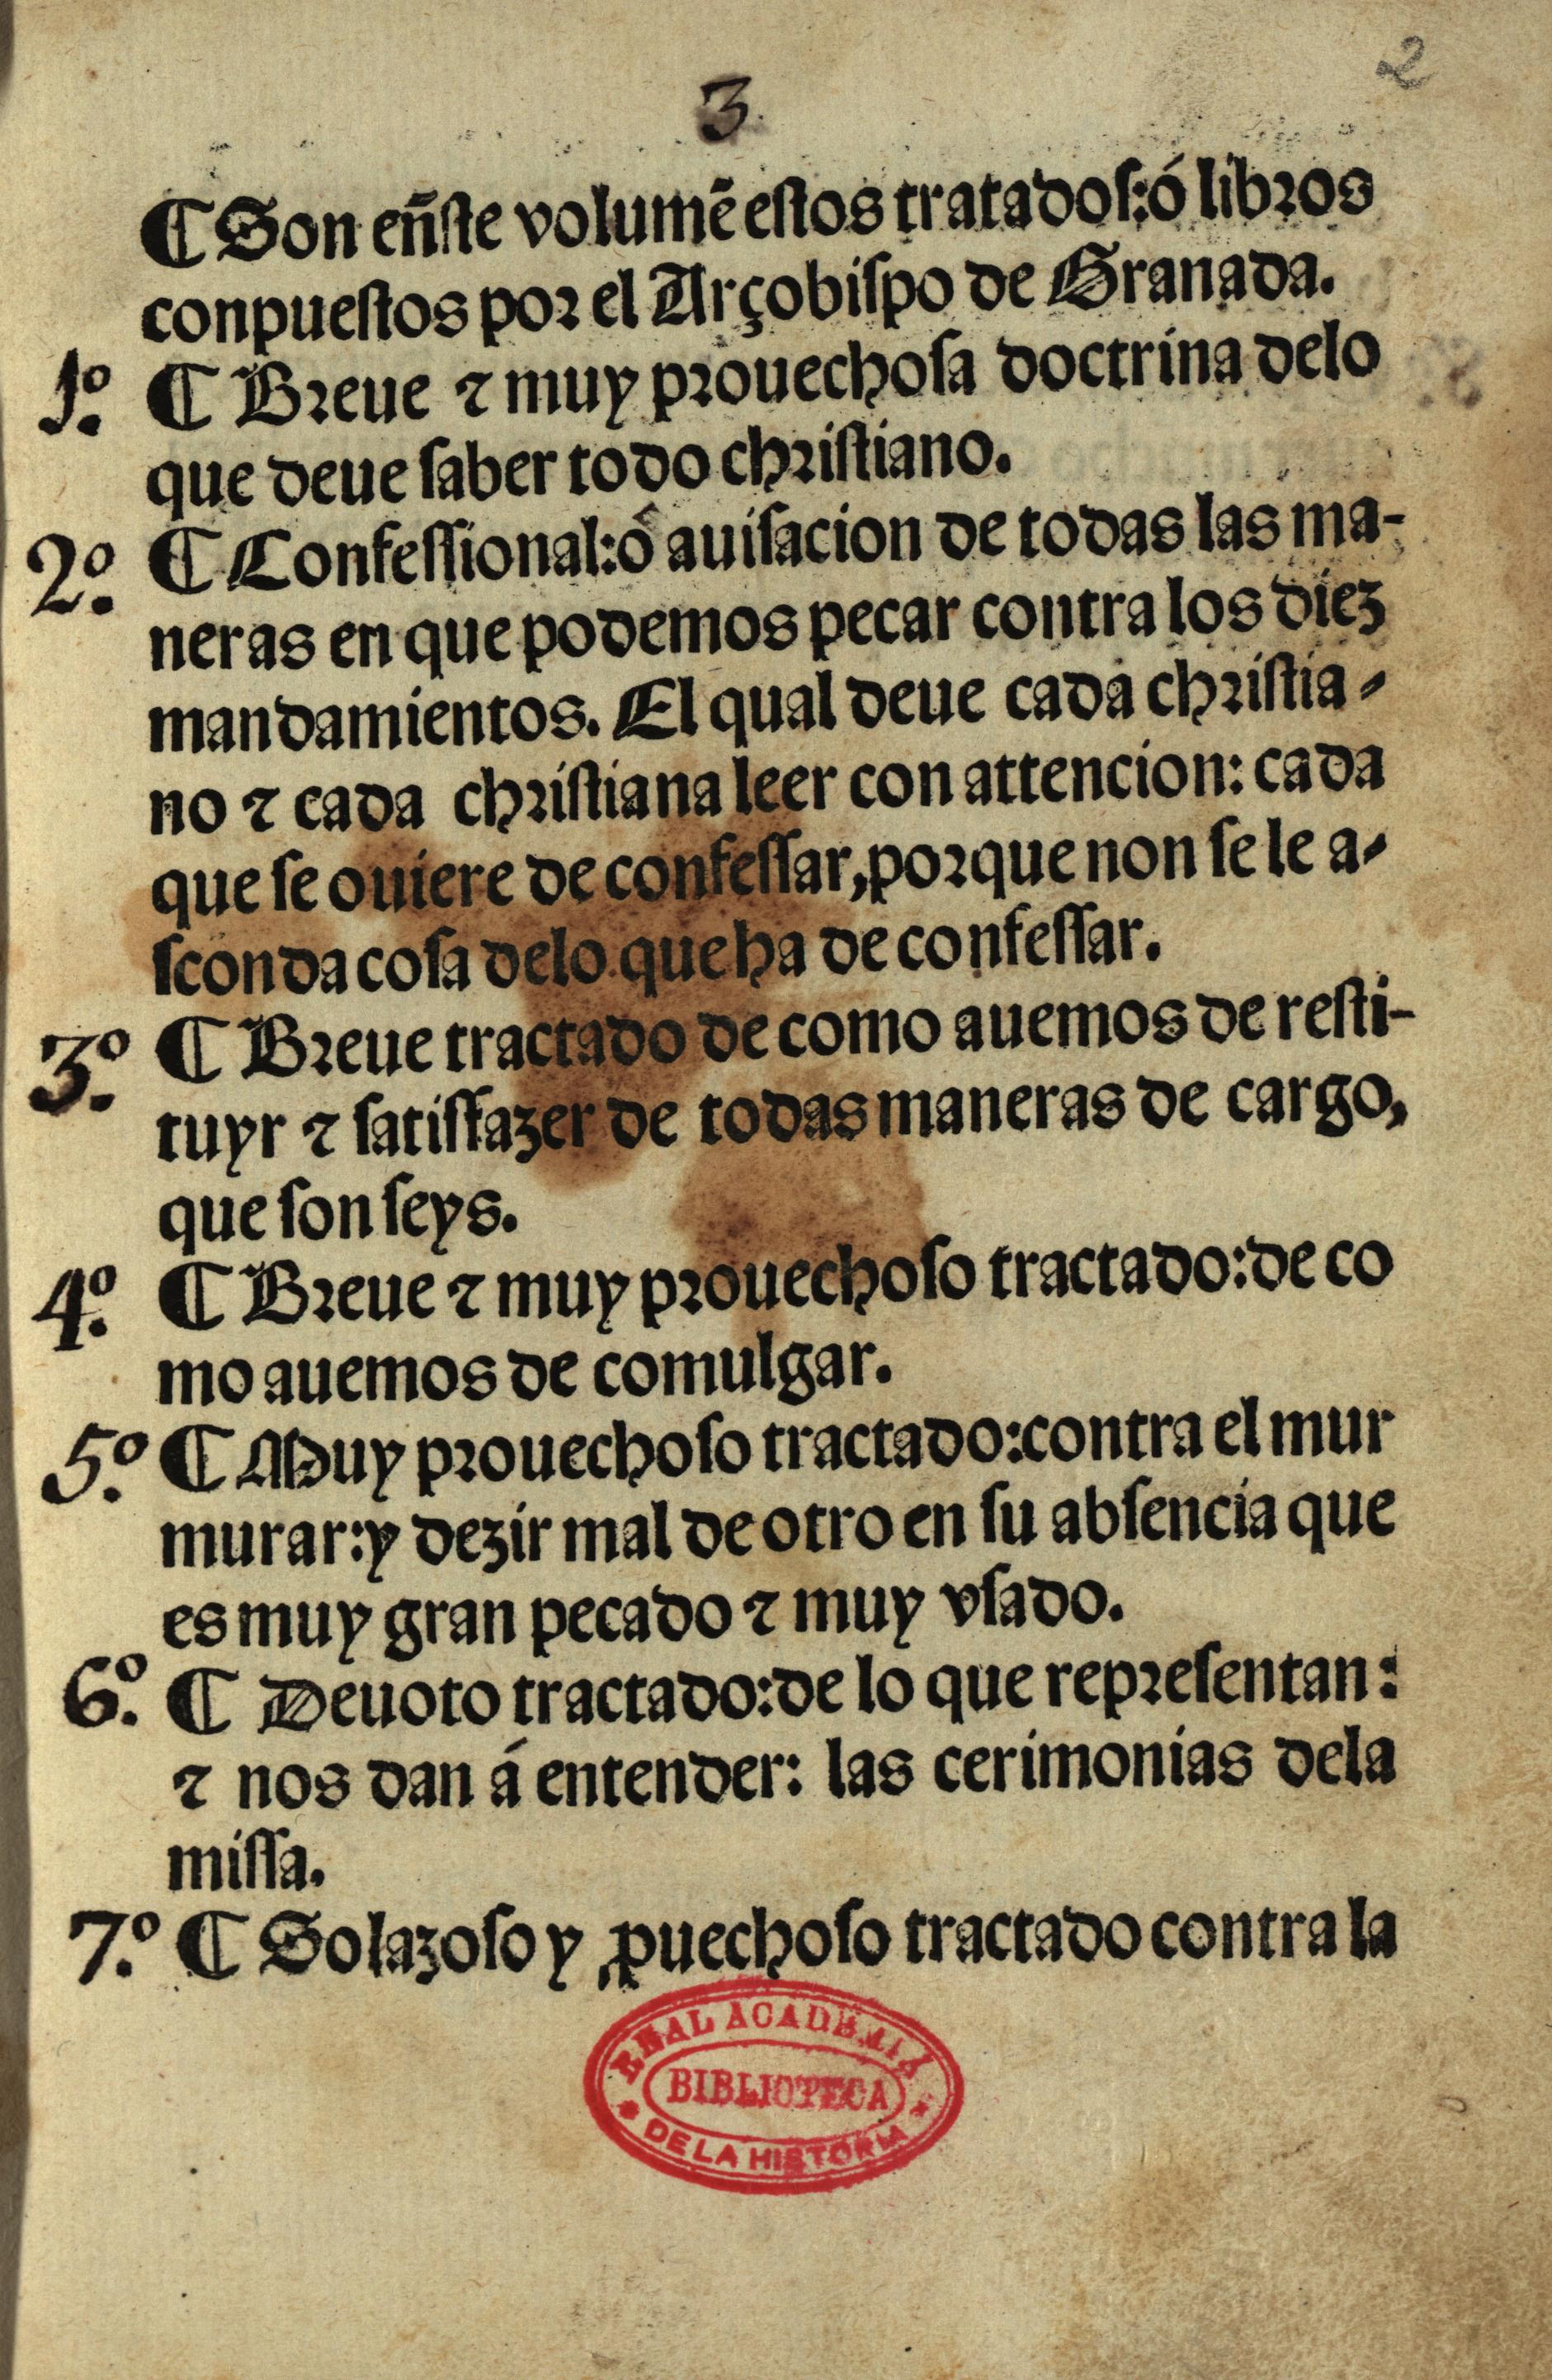 2
3
¶ Son en̄ste volumē estos tratados:ó libros
conpuestos por el Arçobispo de Granada.
1º. ¶ Breue ⁊ muy prouechosa doctrina delo
que deue saber todo christiano.
2º. ¶ Confessional:ó auisacion de todas las ma-
neras en que podemos pecar contra los diez
mandamientos. El qual deue cada christia-
no ⁊ cada christiana leer con attencion: cada
que se ouiere de confessar, porque non se le a-
sconda cosa delo que ha de confessar.
3º. ¶ Breue tractado de como auemos de resti-
tuyr ⁊ satisfazer de todas maneras de cargo,
que son seys.
4º. ¶ Breue ⁊ muy prouechoso tractado:de co
mo auemos de comulgar.
5º. ¶ Muy prouechoso tractado:contra el mur
murar:y dezir mal de otro en su absencia que
es muy gran pecado ⁊ muy vsado.
6º. ¶ Deuoto tractado:de lo que representan:
⁊ nos dan á entender: las cerimonias dela
missa.
7º. ¶ Solazoso y ꝓuechoso tractado contra la
REAL ACADEMIA
BIBLIOTECA
DE LA HISTORIA